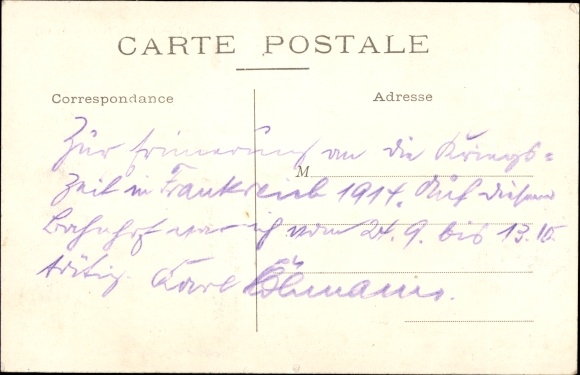 CARTE POSTALE
Correspondance
Adresse
M
Zur Erinnerung an die Kriegs=
zeit in Frankreich 1914. Auf diesem
Bahnhof war ich vom 24.9. bis 13.10.
tätig. Karl